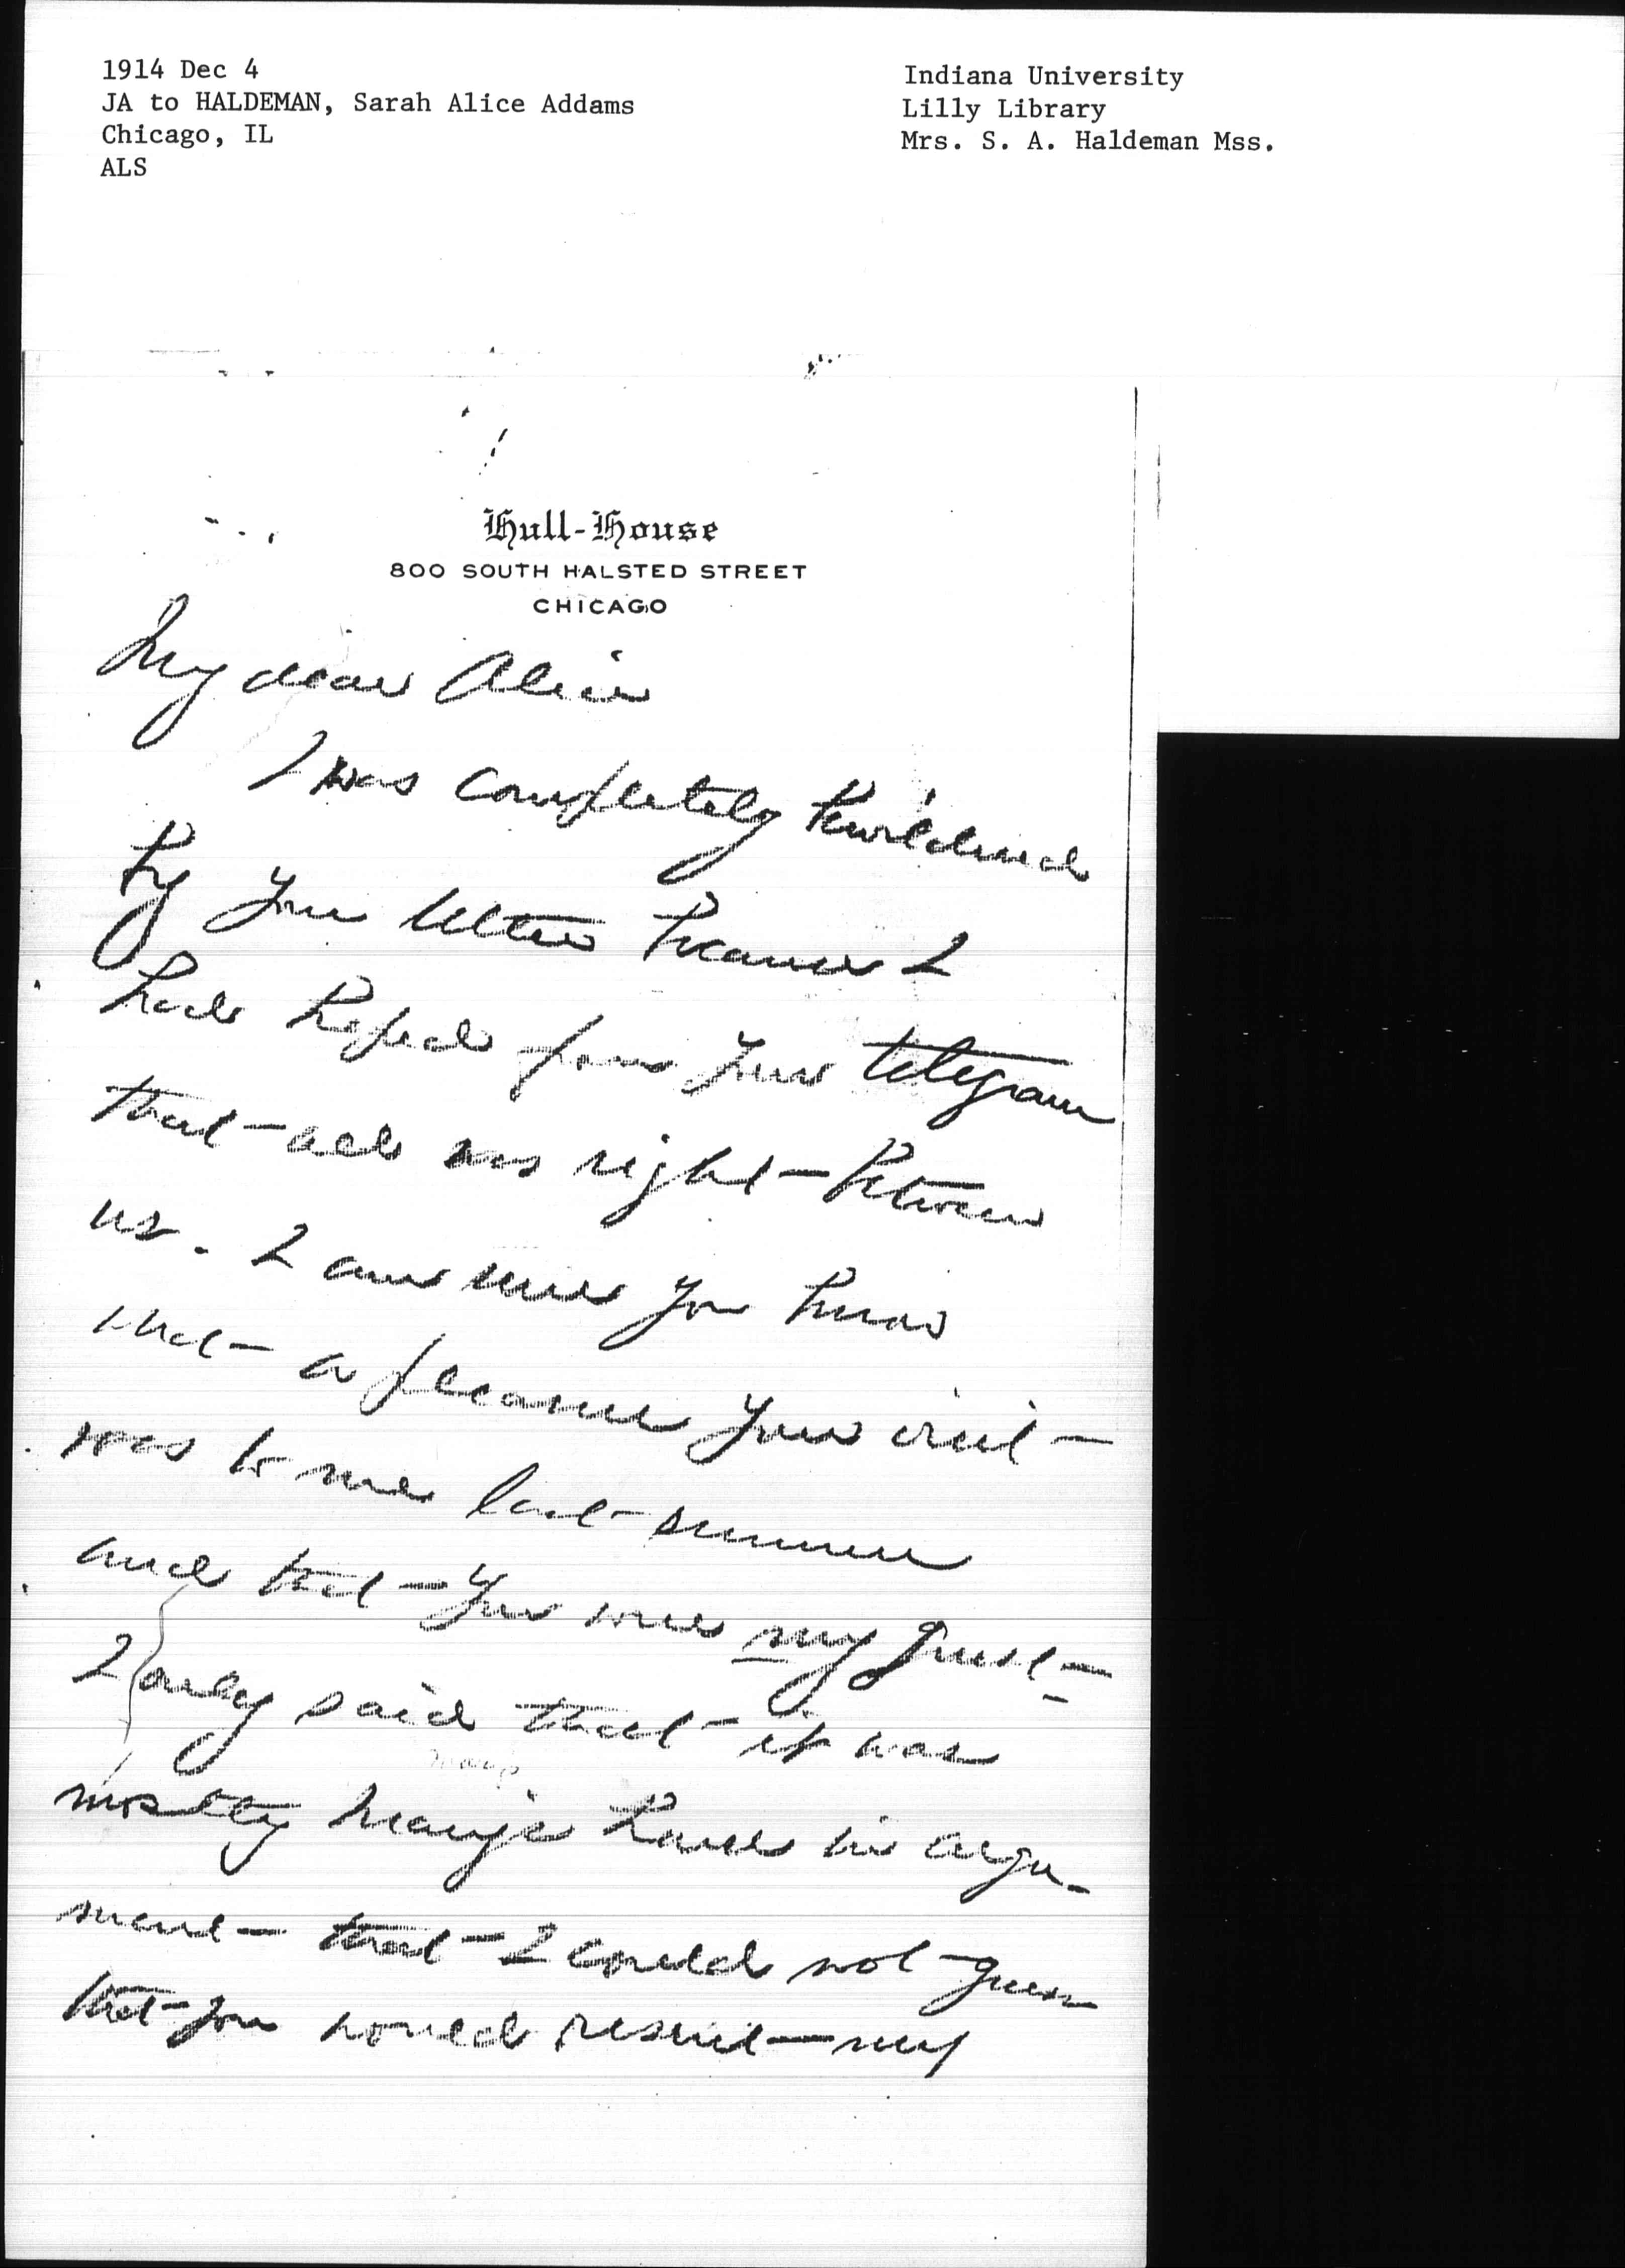 1914 Dec 4
JA to HALDEMAN, Sarah Alice Addams
Chicago, IL
ALS
Indiana University
Lilly Library
Mrs. S. A. Haldeman Mss.
Hull-House
800 SOUTH HALSTED STREET
CHICAGO
My dear Alice
I was completely bewildered
by your letter because I
had hoped from your telegram
that all was right between
us. I am sure you know
what a pleasure your visit
was to me last summer
and that you were my guest
I only said that it was
mostly Marys house in argu-
ment that I could not guess
that you would resent my